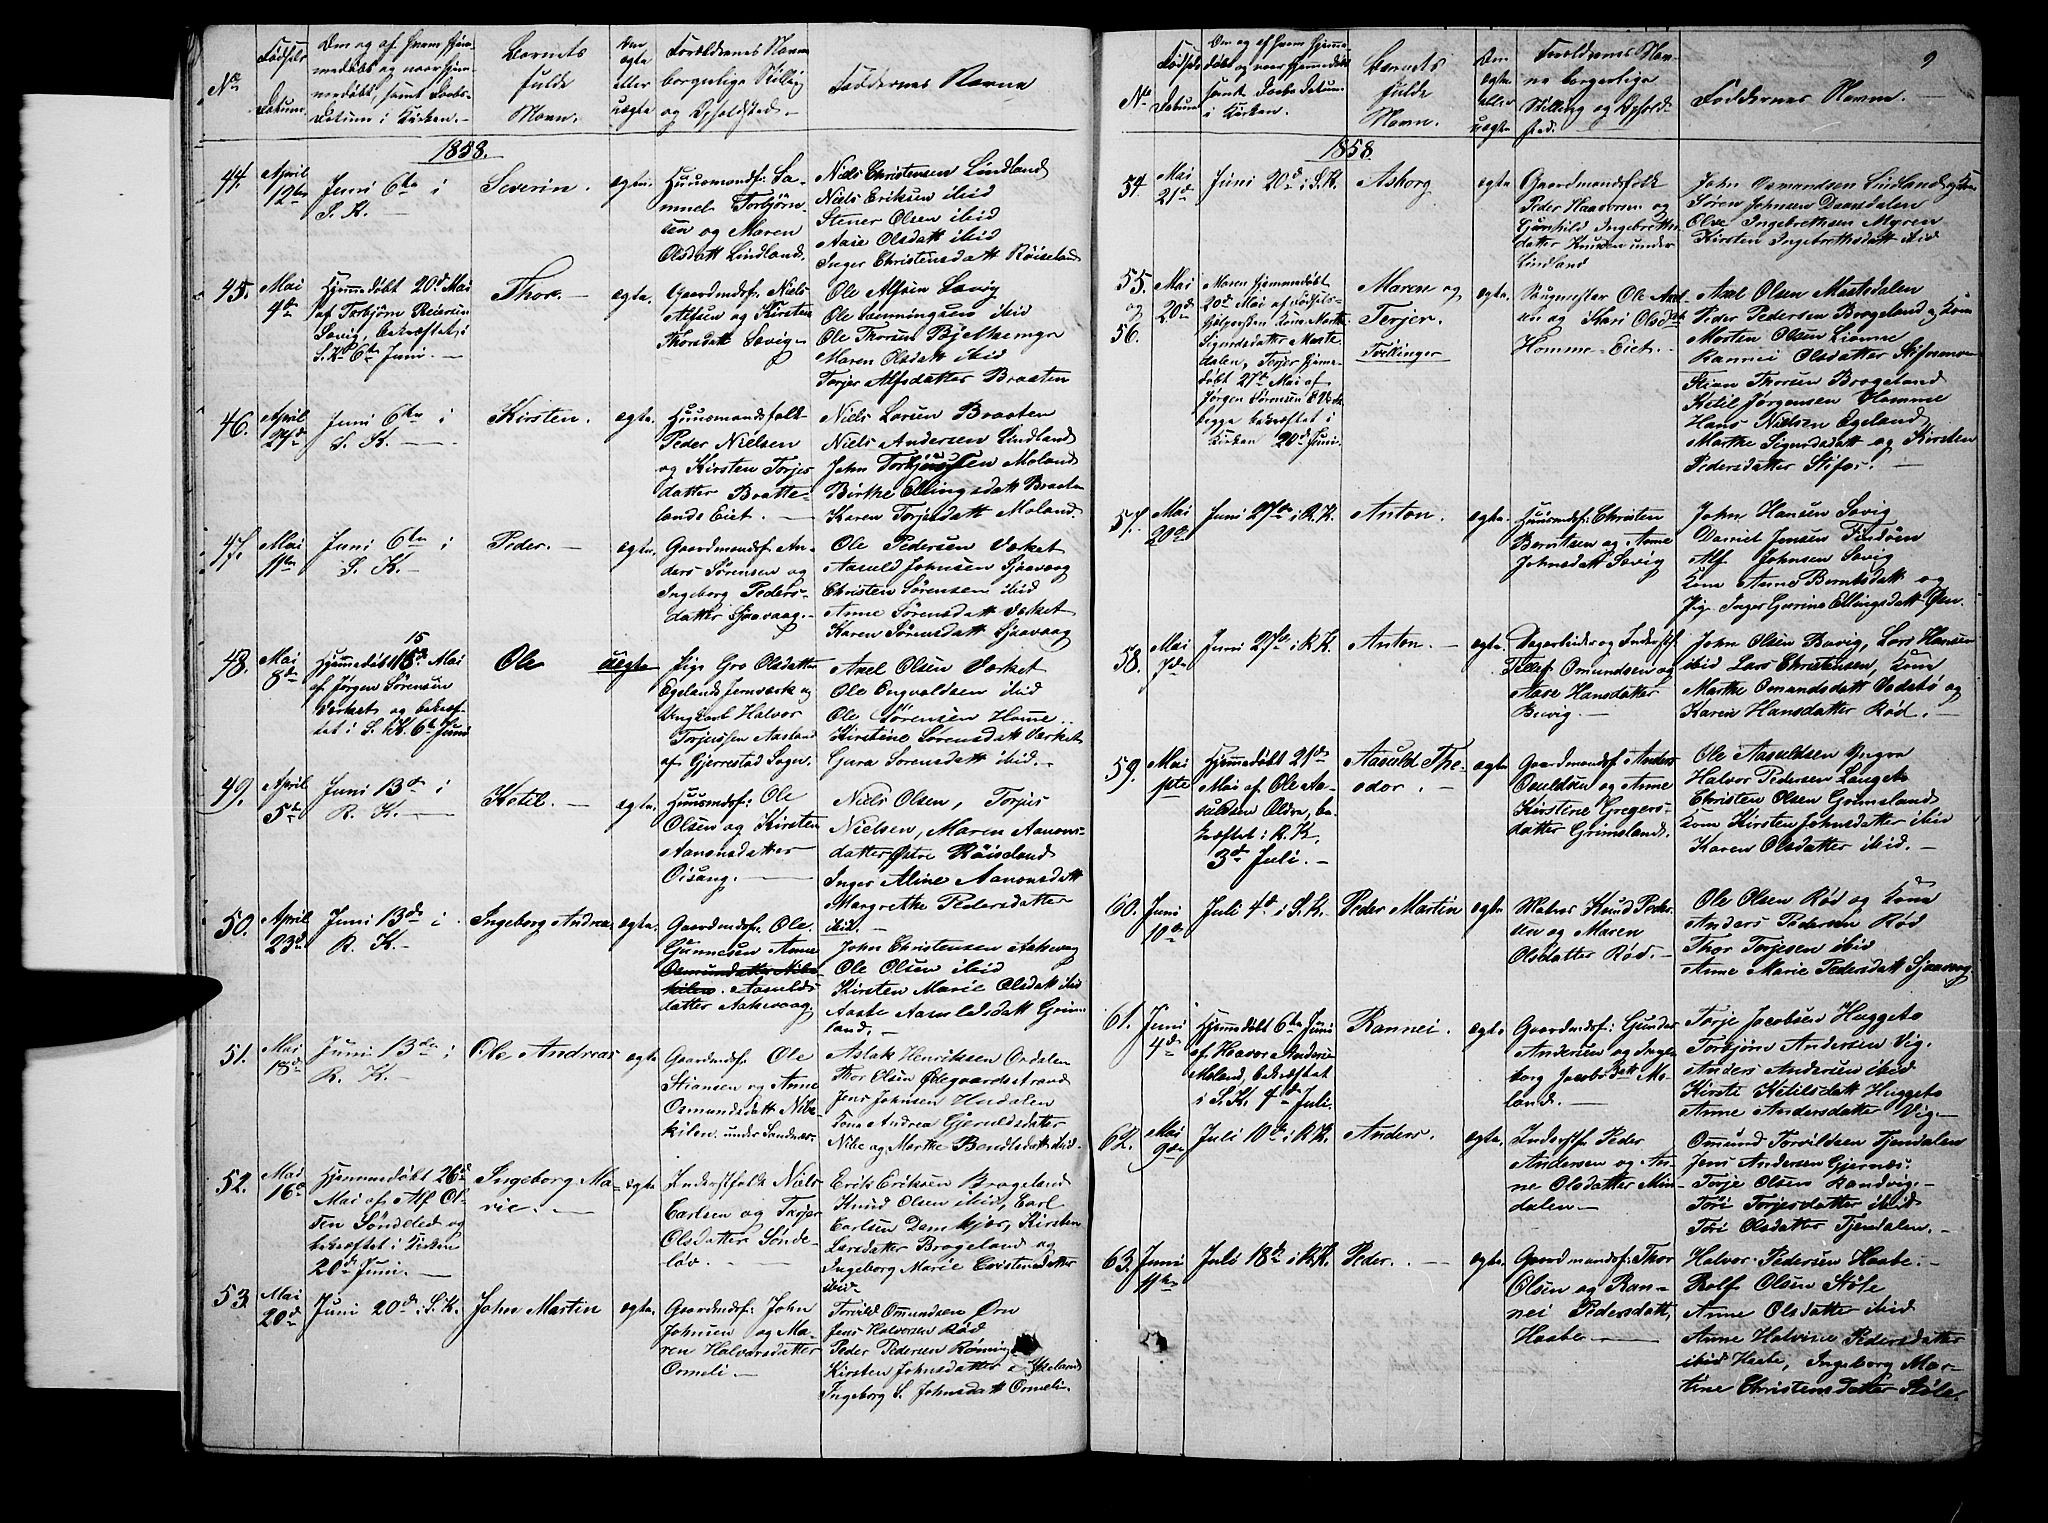 No
Fødsels
Datum.
Om og af hvem hjem-
medøbt og naar hjem-
medøbt, samt Daabs-
Datum i Kirken.
Barnets
fulde
Navn.
Om
ægte
eller
uægte
Forældrenes Navn
borgerlige Stilling
og Opholdsted.
Faddernes Navne
1858.
44.
April
12te
Juni 6te i
S. K.
Severin.
ægte.
Huusmandsf: Sa-
muel Torbjørn-
sen og Maren
Olsdatt Lindland.
Niels Christensen Lindland
Niels Eriksen ibid
Stener Olsen ibid
Aase Olsdatt ibid
Inger Christensdatt Røiseland
45.
Mai
4de
Hjemmedøbt 20d Mai
af Torbjørn Reiersen
Savig, bekræftet i
S. K. 6te Juni.
Thor.
ægte.
Gaardmdsf: Niels
Alfsen og Kirsten
Thorsdatt Savig
Ole Alfsen Savig
Ole Lanningsen ibid
Ole Thorsen Bjelkemyr
Maren Olsdatt ibid
Torjer Alfsdatter Braaten
46.
April
27d
Juni 6te i
S. K.
Kirsten.
ægte.
Huusmandsfolk
Peder Nielsen
og Kirsten Torjes-
datter Bratte-
lands Eiet.
Niels Larsen Braaten
Niels Andersen Lindland
John Torbjørnsen Moland
Birthe Ellingsdatt Braaten
Karen Torjesdatt Moland.
47.
Mai
11te
Juni 6te i
S. K.
Peder.
ægte.
Gaardmandsf: An-
ders Sørensen og
Ingeborg Peders-
datter Sjaavaag.
Ole Pedersen Værket
Aasuld Johnsen Sjaavaag
Christen Sørensen ibid
Anne Sørensdatt Værket
Karen Sørensdatt Sjaavaag
48.
Mai
8de
15
Hjemmedøbt 15d Mai
af Jørgen Sørensen
Værket og bekræf-
tet i S. K. 6te Juni
Ole
uægte
Pige Gro Olsdatter
Egelands Jernværk og
Ungkarl Halvor
Torjussen Aasland
af Gjerrestad Sogn.
Axel Olsen Værket
Ole Engvaldsen ibid
Ole Sørensen Home
Kirstine Sørensdatt Værket
Gura Sørensdatt ibid.
49.
April
5te
Juni 13de i
R. K.
Ketil.
ægte.
Huusmdsf: Ole
Olsen og Kirsten
Aanonsdatter
Oisang.
Niels Olsen, Torjus
Nielsen, Maren Aanons-
datter Østre Røiseland
Inger Aline Aanonsdatt
Margrethe Pedersdatter
ibid.
50.
April
23d
Juni 13de i
R. K.
Ingeborg Andrea.
ægte.
Gaardmdsf: Ole
Gunnesen Anne
Aasulds-
datter Aakvaag.
John Christensen Aakvaag
Ole Olsen ibid
Kirsten Marie Olsdatt ibid
Aaste Aasuldsdatt Grims-
land.
51.
Mai
18de
Juni 13de i
R. K.
Ole Andreas
ægte
Gaardmdsf: Ole
Stiansen og Anne
Osmundsdatt Nibe-
kilen under Sandnæs
Aslak Henriksen Oxdalen
Thor Olsen Ødegaardsstrand
Jens Johnsen Hasdalen
Tone Andrea Gjeruldsdatter
Nibe og Marthe Bendtsdatt ibid.
52.
Mai
16d
Hjemmedøbt 26d
Mai af Alf Ol-
sen Søndeled og
bekræftet i Kirken
20d Juni.
Ingeborg Ma-
rie.
ægte
Inderstfolk Niels
Carlsen og Torjer
Olsdatter Sønde-
løv.
Erik Eriksen Brogeland
Knud Olsen ibid, Carl
Carlsen Damkjær, Kirsten
Larsdatter Brogeland og
Ingeborg Marie Christensdatter
ibid
53.
Mai
20d
Juni 20d i S. K.
John Martin
ægte.
Gaardmdsf: John
Johnsen og Ma-
ren Halvorsdatter
Ormeli.
Torvild Omundsen Ørn
Jens Halvorsen Rød
Peder Pedersen Rønning
Kirsten Johnsdatter Espeland
Ingeborg S. Johnsdatt Ormeli.
9
No
Fødsels
Datum
Om og af hvem hjemme-
døbt og naar hjemmedøbt
samt Daabs Datum
i Kirken.
Barnets
fulde
Navn.
Om
ægte
eller
uægte
Forældrenes Nav-
ne borgerlige
Stilling og Ophold-
sted.
Faddernes Navne.
1858
54.
Mai
21d
Juni 20d i S. K.
Asborg
ægte
Gaardmandsfolk
Peder Haavorsen og
Gunhild Ingebreths-
datter Knuten under
Lindland
John Osmundsen Lindland og Kone
Søren Johnsen Daasdalen
Ole Ingebrethsen Myren
Kirsten Ingebrethsdatt ibid
55.
og
56.
Mai
20d
Maren hjemmedøbt
20d Mai af Fødsels-
hjelpersken Kone Marthe
Sigurdsdatter Maste-
dalen, Torjer hjemme-
døbt 27d Mai af
Jørgen Sørensen
begge bekræftet i
Kirken 20d Juni.
Maren og
Terjer.
Tvillinger
ægte.
Saugmester Ole Axel-
sen og Kari Olsdatt
Homme-Eiet.
Axel Olsen Mastedalen
Peder Pedersen Brogeland og Kone
Morten Olsen Lianne
Rannei Olsdatter Stifosmoen
Stian Thorsen Brogeland
Ketil Jørgensen Hamme
Hans Nielsen Egeland
Marthe Sigurdsdatt og Kirsten
Pedersdatter Stifos.
57.
Mai
20d
Juni 27de i R. K.
Anton.
ægte
Huusmdsf: Christen
Berntsen og Anne
Johnsdatt Savig
John Hansen Savig
Daniel Jensen Findøen
Alf Johnsen Savig
Kone Anne Berntsdatt og
Pige Inger Gurine Ellingsdatt
58.
Mai
7de
Juni 27de i R. K.
Anton.
ægte.
Dagarbeider og Inderstf.
Tellef Omundsen og
Aase Hansdatter
Buvig.
John Olsen Buvig, Lars Hansen
ibid Lars Christensen, Kone
Marthe Omundsdatt Vadstø og
Karen Hansdatter Rød.
59.
Mai
1ste
Hjemmedøbt 21de
Mai af Ole Aa-
suldsen Oldre, be-
kræftet i R. K.
3de Juli.
Aasuld The-
odor.
ægte
Gaardmandsf: Anders
Osuldsen og Anne
Kirstine Gregers-
datter Grimsland.
Ole Aasuldsen
Halvor Pedersen Langeto
Christen Olsen Grimsland
Kone Kirsten Johnsdatter ibid
Karen Olsdatter ibid.
60.
Juni
10de
Juli 4d i S. K.
Peder Martin
ægte
Matros Knud Peder-
sen og Maren
Olsdatter Rød.
Ole Olsen Rød og Kone
Anders Pedersen Rød
Thor Torjesen ibid
Anne Marie Pedersdatt Sjaavaag
61.
Juni
4de
Hjemmedøbt 6te Juni
af Haavor Andersen
Moland, bekræftet
i S. K. 4de Juli.
Rannei.
ægte
Gaardmdsf: Gunder
Andersen og Inge-
borg Jacobsdatt Mo-
land.
Torje Jacobsen Huggeto
Torbjørn Andersen Vig.
Anders Andersen ibid
Kirste Ketilsdatt Huggeto
Anne Andersdatter Vig.
62.
Mai
9de
Juli 10de i R. K.
Anders.
ægte
Inderstf. Peder
Andersen og An-
ne Olsdatter Min-
dalen.
Omund Torvildsen Tjendalen
Jens Andersen Gjernæs.
Torje Olsen Randvig.
Tori Torjesdatter ibid
Tori Olsdatter Tjendalen.
63.
Juni
11te
Juli 18de i R. K.
Peder.
ægte.
Gaardmandsf: Thor
Olsen og Ran-
nei Pedersdatt,
Haabe
Halvor Pedersen Haabe.
Rolf Olsen Støle
Anne Olsdatter ibid
Anne Halvine Pedersdatter
ibid Haabe, Ingeborg Mar-
tine Christensdatter Støle.